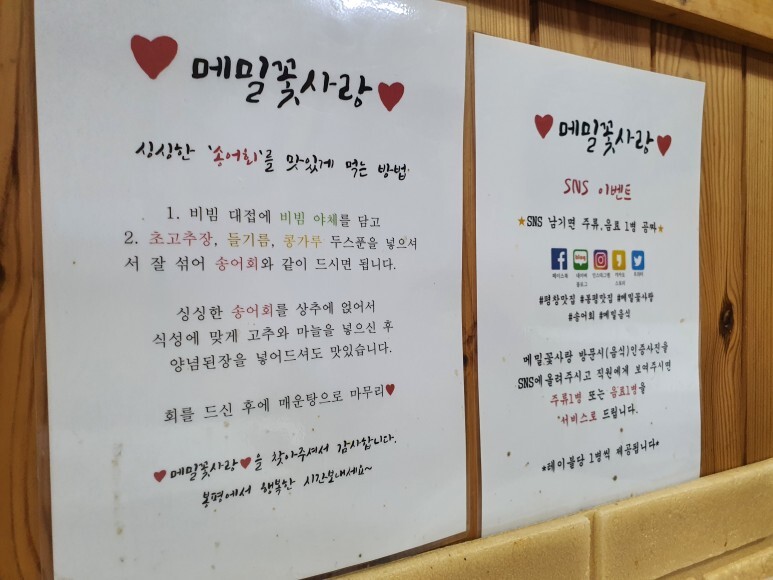 메밀꽃사랑
싱싱한 '송어회'를 맛있게 먹는 방법
1. 비빔 대접에 비빔 야채를 담고
2. 초고추장, 들기름, 콩가루 두스푼을 넣으셔
서 잘 섞어 송어회와 같이 드시면 됩니다.
싱싱한 송어회를 상추에 얹어서
식성에 맞게 고추와 마늘을 넣으신 후
양념된장을 넣어드셔도 맛있습니다.
회를 드신 후에 매운탕으로 마무리♥
♥메밀꽃사랑♥을 찾아주셔서 감사합니다.
봉평에서 행복한 시간보내세요~
메밀꽃사랑
SNS 이벤트
★SNS 남기면 주류,음료 1병 공짜★
페이스북 네이버 인스타그램 카카오 트위터
블로그 스토리
#평창맛집 #봉평맛집 #메밀꽃사랑
#송어회 #메밀음식
메밀꽃사랑 방문시(음식)인증사진을
SNS에올려주시고 직원에게 보여주시면
주류1병 또는 음료1병을
서비스로 드립니다.
*테이블당 1병씩 제공됩니다*